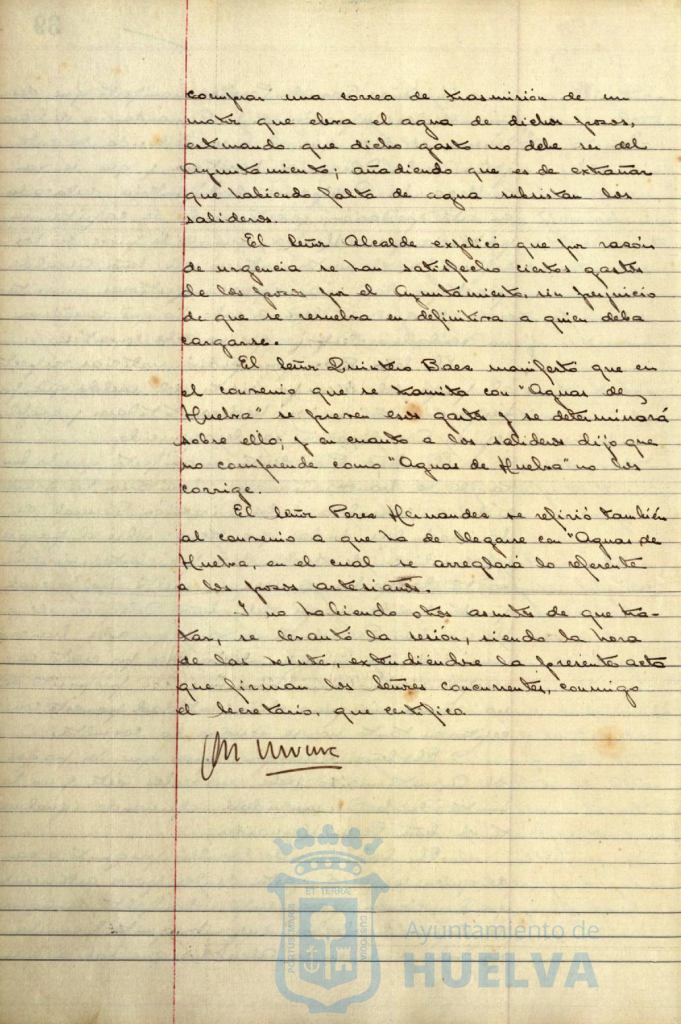 comprar una correa de trasmisión de un
motor que eleva el agua de dichos pozos,
estimando que dicho gasto no debe ser del
Ayuntamiento; añadiendo que es de extrañar
que habiendo falta de agua subsistan los
salideros.
El Señor Alcalde explicó que por razón
de urgencia se han satisfecho ciertos gastos
de los pozos por el Ayuntamiento, sin perjuicio
de que se resuelva en definitiva a quien deba
cargarse.
El Señor Quintero Baez manifestó que en
el convenio que se tramita con "Aguas de
Huelva" se preven esos gastos y se determinará
sobre ello; y en cuanto a los salideros dijo que
no comprende como "Aguas de Huelva" no los
corrige.
El Señor Perez Hernandez se refirió también
al convenio a que ha de llegarse con "Aguas de
Huelva, en el cual se arreglará lo referente
a los pozos artesianos.
Y no habiendo otros asuntos de que tra-
tar, se levantó la sesión, siendo la hora
de las veinte, extendiéndose la presente acta
que firman los Señores concurrentes, conmigo
el Secretario, que certifico.
ET TERRÆ
PORTUS MARIS
CUSTODIA
Ayuntamiento de
HUELVA